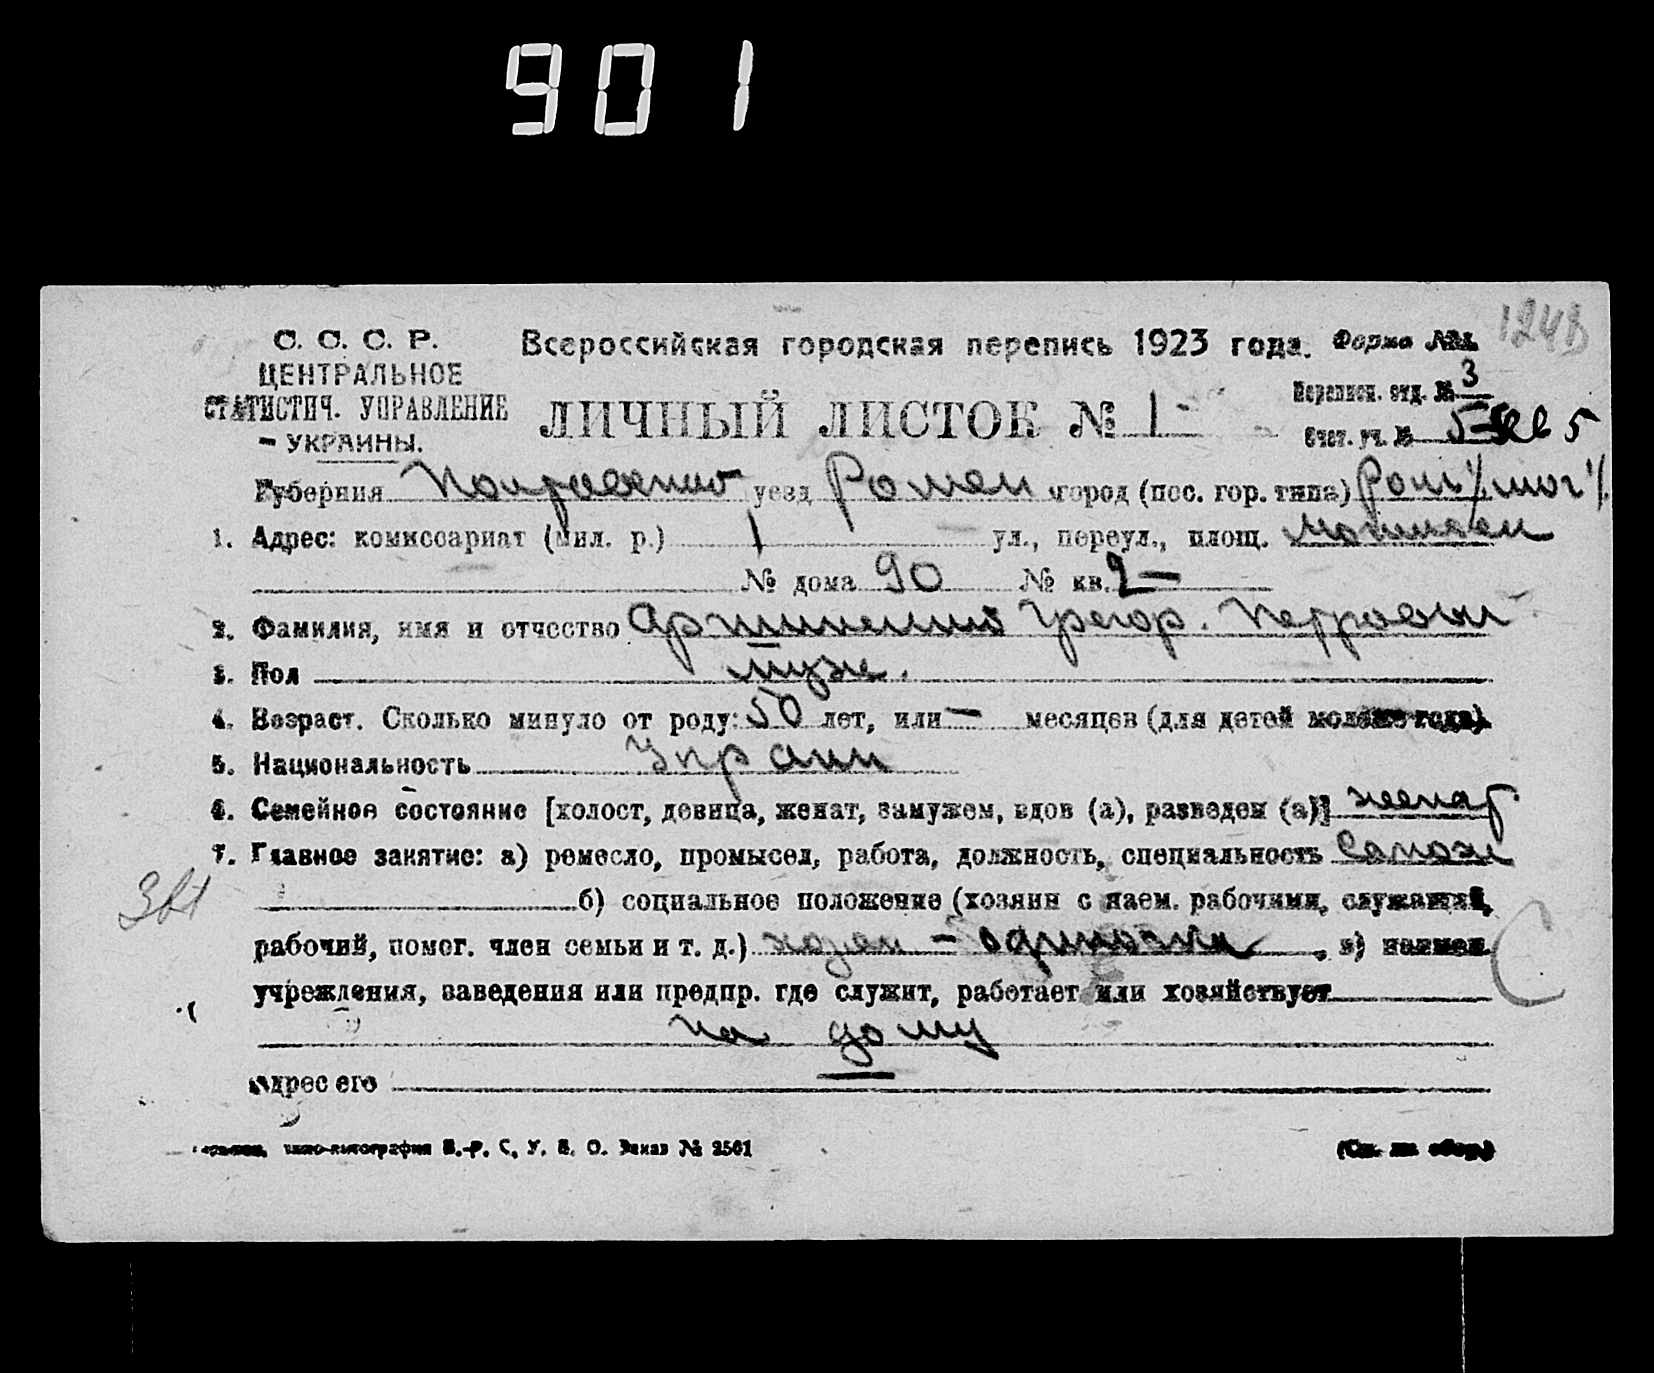 901
1243
С. С. С. Р.
ЦЕНТРАЛЬНОЕ
СТАТИСТИЧ. УПРАВЛЕНИЕ
– УКРАИНЫ.
Всероссийская городская перепись 1923 года. Форма №
ЛИЧНЫЙ ЛИСТОК № 1 -
Переписн. отд. № 3
Счет. уч. № 5
Губерния уезд Ромен город (пос. гор. типа)
1. Адрес: комиссариат (мил. р.) 1 ул., переул., площ.
№ дома 90 № кв. 2 –
2. Фамилия, имя и отчество Грегор.
3. Пол муж.
4. Возраст. Сколько минуло от роду: 50 лет, или – месяцев (для детей моложе года)
5. Национальность Украин
6. Семейное состояние [холост, девица, женат, замужем, вдов (а), разведен (а)] женат
7. Главное занятие: а) ремесло, промысел, работа, должность, специальность Сапож
б) социальное положение (хозяин с наем. рабочими, служащий,
рабочий, помог. член семьи и т. д.) хозяин – одиночка, в) наимен.
учреждения, заведения или предпр. где служит, работает или хозяйствует
на дому
Адрес его
Р. С. У. В. О. Заказ № 2561
(См. на обор.)